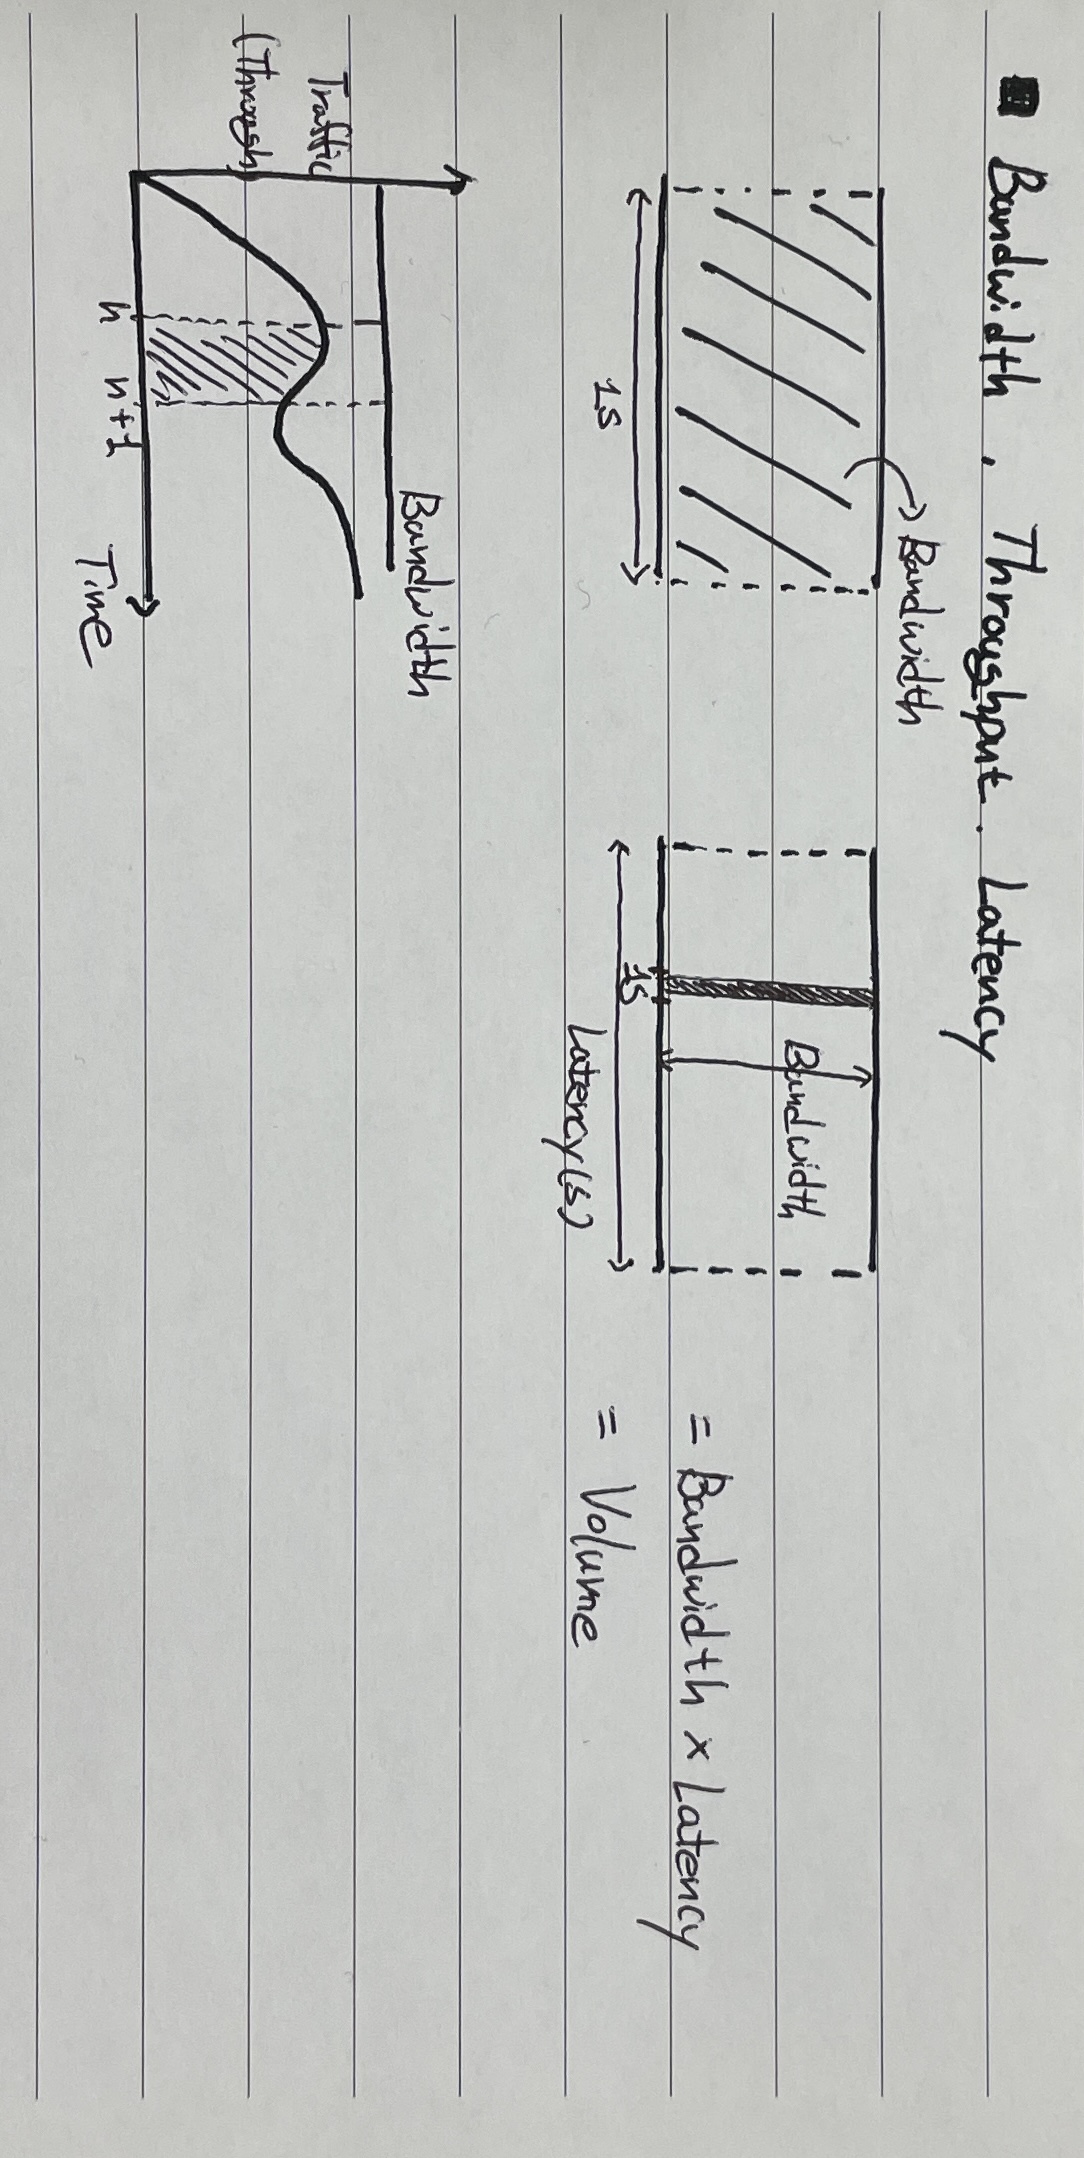 Bandwidth, Throughput. Latency
Bandwidth
1S
Bandwidth
1S
Latency(s)
= Bandwidth × Latency
= Volume
Bandwidth
Traffic
(Through)
n n+1
Time